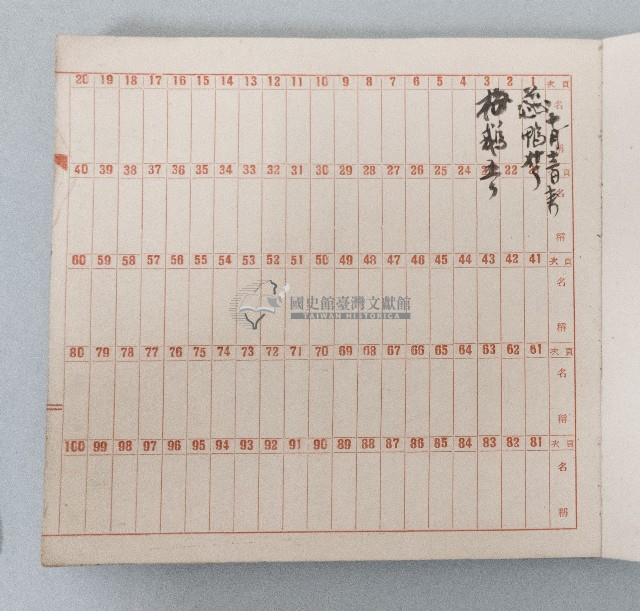 頁次 1 2 3 4 5 6 7 8 9 10 11 12 13 14 15 16 17 18 19 20
名稱
頁次 21 22 24 25 26 27 28 29 30 31 32 33 34 35 36 37 38 39 40
名稱
頁次 41 42 43 44 45 46 47 48 49 50 51 52 53 54 55 56 57 58 59 60
名稱
頁次 61 62 63 64 65 66 67 68 69 70 71 72 73 74 75 76 77 78 79 80
名稱
頁次 81 82 83 84 85 86 87 88 89 90 91 92 93 94 95 96 97 98 99 100
名稱
國史館臺灣文獻館
TAIWAN HISTORICA